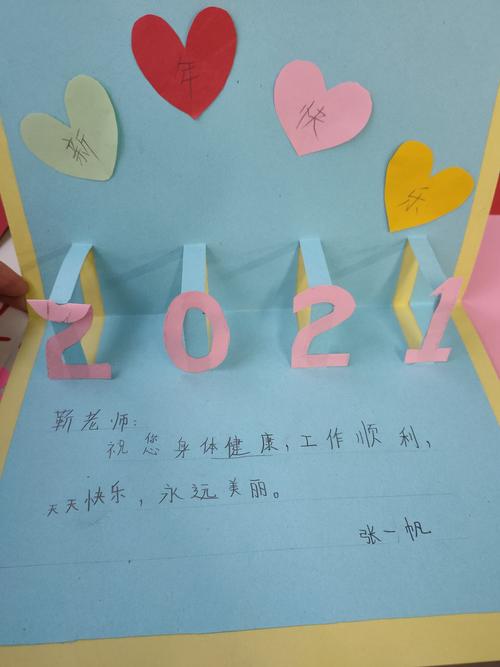 新年快乐
2021
靳老师:
祝您身体健康,工作顺利,
天天快乐,永远美丽。
张一帆